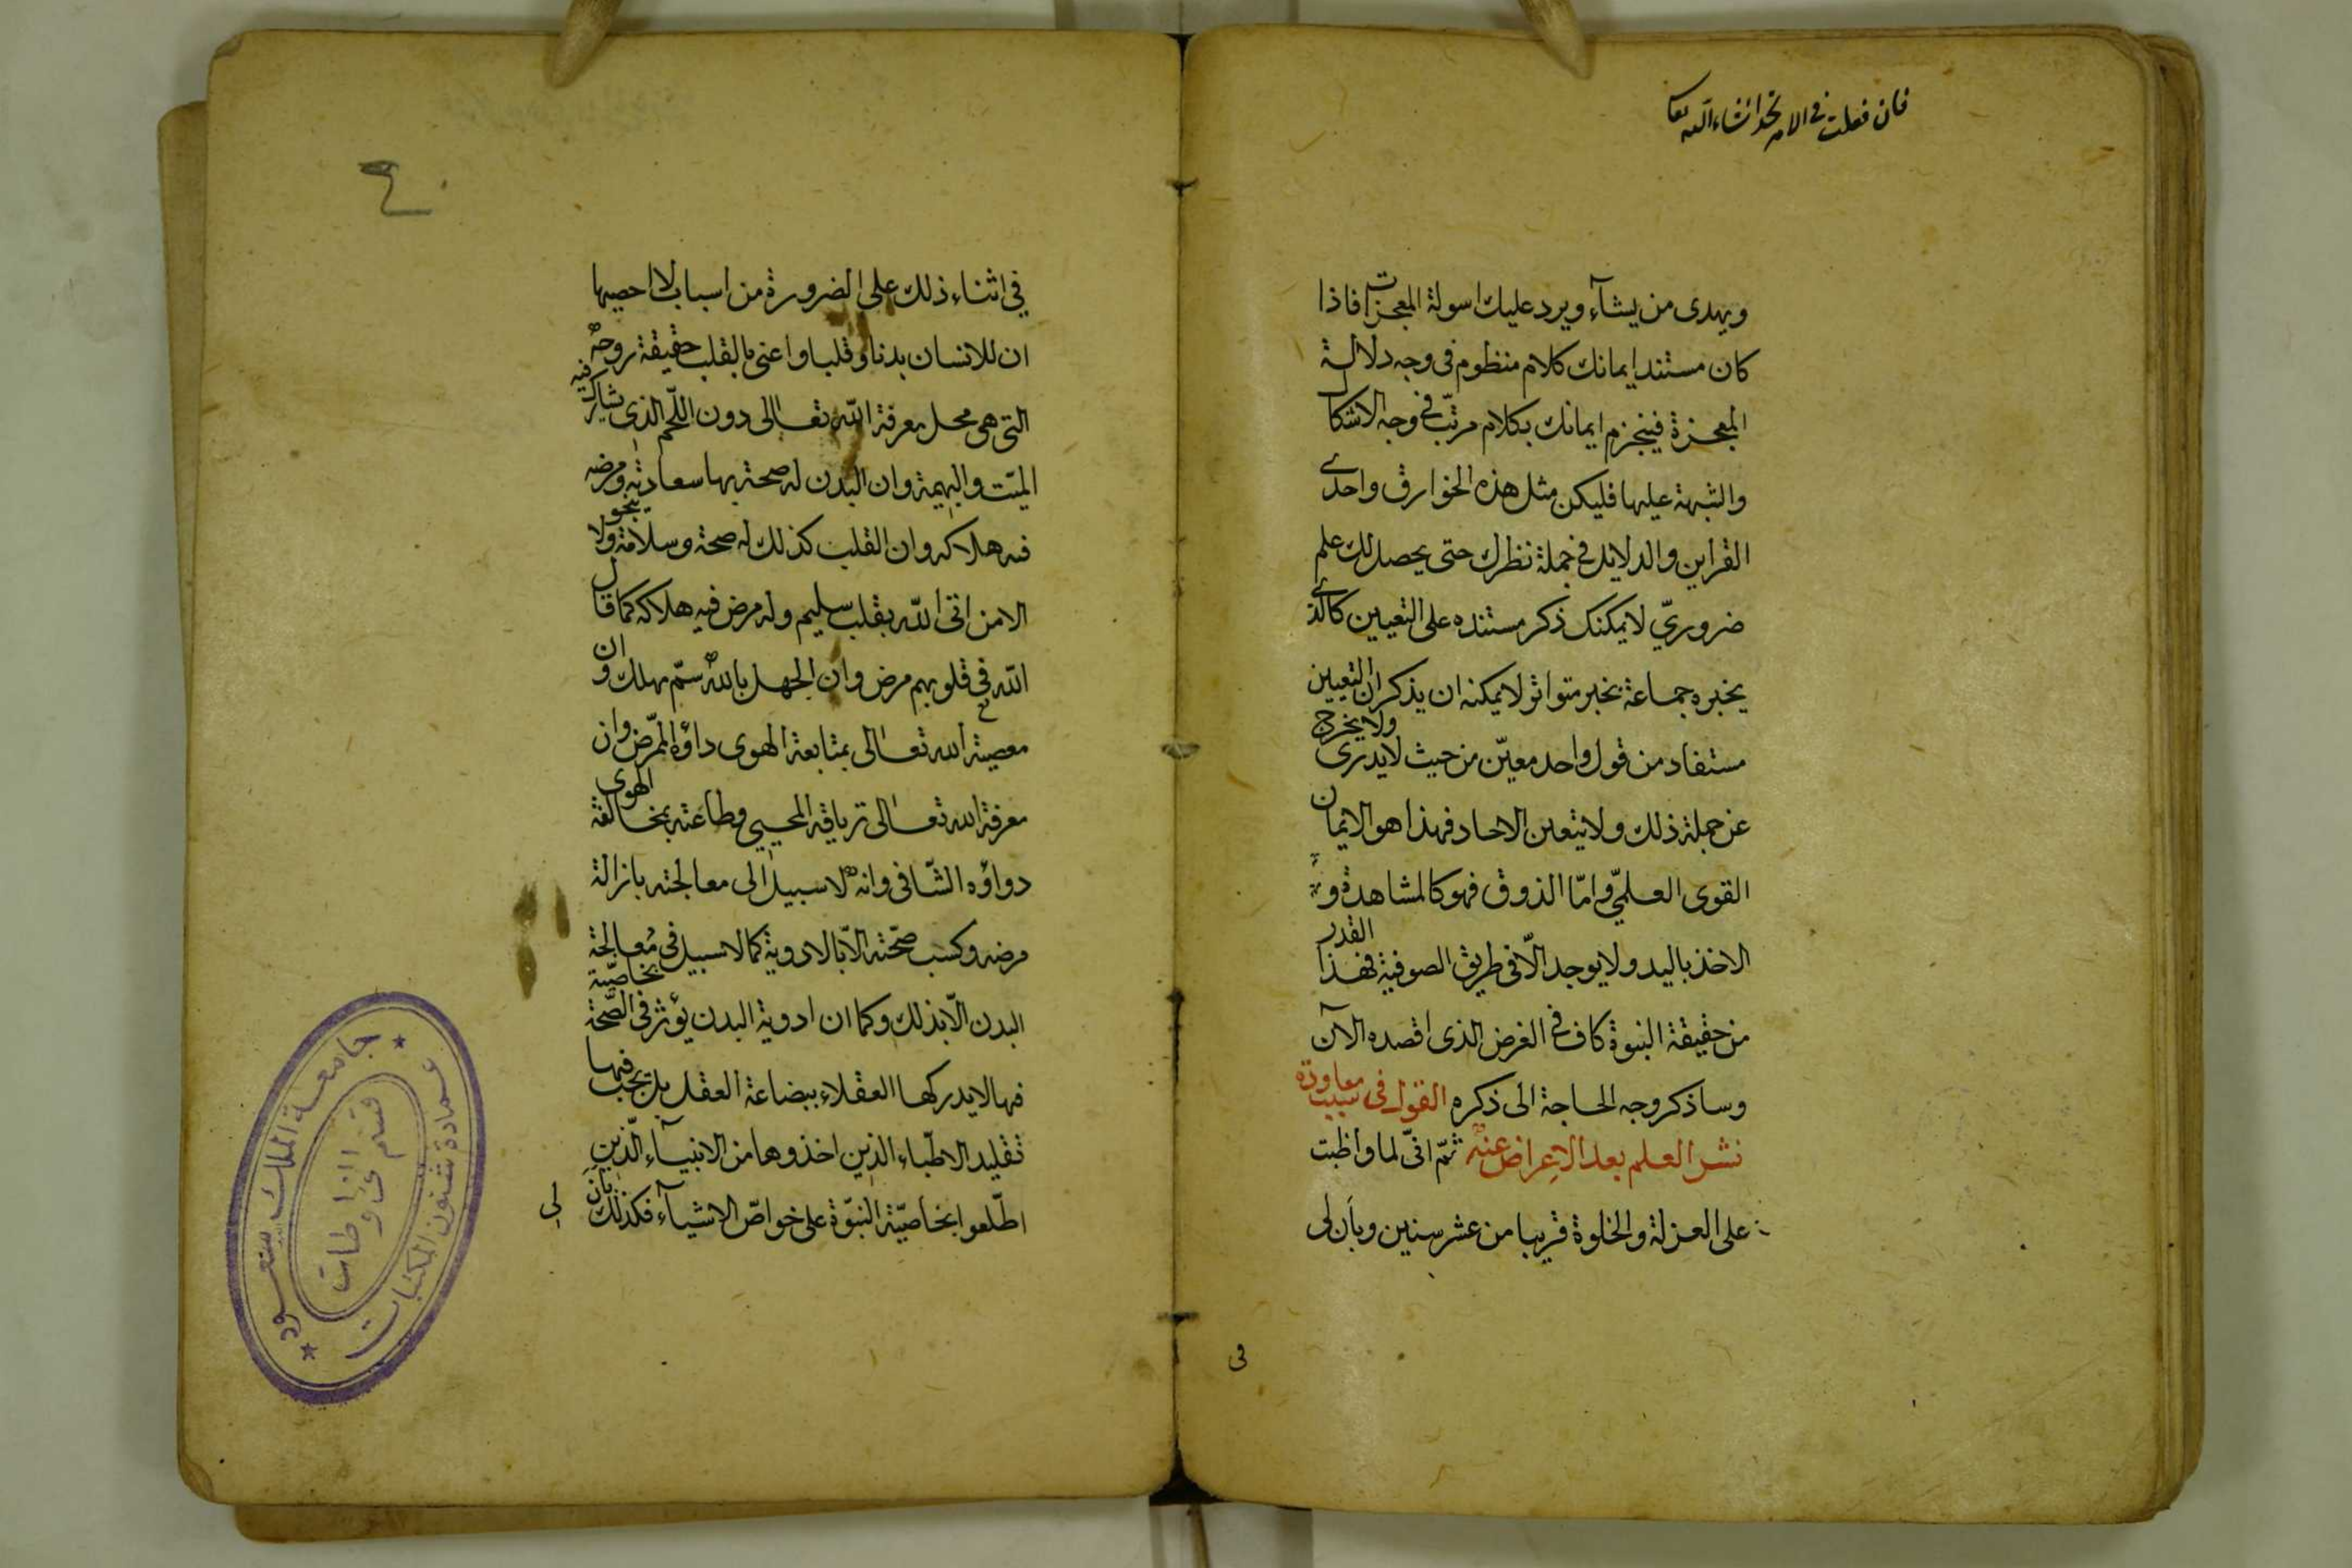 فان فعلت في الامر تجد انشاء الله تعا
ويهدى من يشآء ويرد عليك اسولة المعجزات فاذا
كان مستند ايمانك كلام منظوم فى وجه دلالة
المعجزة فينجزم ايمانك بكلام مرتّب في وجه الاشكال
والشبهة عليها فليكن مثل هذه الخوارق واحدى
القراين والدلايل في جملة نظرك حتى يحصل لك علم
ضروريّ لا يمكنك ذكر مستنده على التعيين كالذى
يخبره جماعة بخبر متواتر لا يمكنه ان يذكر ان التعيين
مستفاد من قول واحد معيّن من حيث لا يدرى ولا يخرج
عن جملة ذلك ولا يتعين الاحاد فهذا هو الايمان
القوى العلميّ وامّا الذوق فهو كالمشاهدة و
الاخذ باليد ولا يوجد الّا فى طريق الصوفية فهذا القدر
من حقيقة النبوة كاف في الغرض الذى اقصده الآن
وساذكر وجه الحاجة الى ذكره القول فى سبب معاودة
نشر العلم بعد الاعراض عنه ثمّ انّى لما واظبت
على العزلة والخلوة قريبا من عشر سنين وبأن لى
فى
٤٠
في اثناء ذلك على الضرورة من اسباب لا احصيها
ان للانسان بدنا وقلبا واعنى بالقلب حقيقة روحه
التى هى محل معرفة الله تعالى دون اللّحم الذى يشارك فيه
الميّت والبهيمة وان البدن له صحة بها سعادته ومرضه
فيه هلاكه وان القلب كذلك له صحة وسلامة ولا ينجو
الا من اتى الله بقلب سليم وله مرض فيه هلاكه كما قال
الله فى قلوبهم مرض وان الجهل بالله سمّ مهلك وان
معصية الله تعالى بمتابعة الهوى داؤه الممرّض وان
معرفة الله تعالى ترياقه المحيي وطاعته بمخالفة الهوى
دواؤه الشّافى وانه لا سبيل الى معالجته بازالة
مرضه وكسب صحّته الّا بالادوية كما لا سبيل فى مُعالجة
البدن الّا بذلك وكما ان ادوية البدن يؤثر فى الصّحة بخاصيّة
فيها لا يدركها العقلاء ببضاعة العقل بل يجب فيها
تقليد الاطبّاء الذين اخذوها من الانبيآء الّذين
اطّلعوا بخاصيّة النبوّة على خواصّ الاشيآء فكذلك بان
لى
جامعة الملك سعود
عمادة شئون المكتبات
قسم المخطوطات